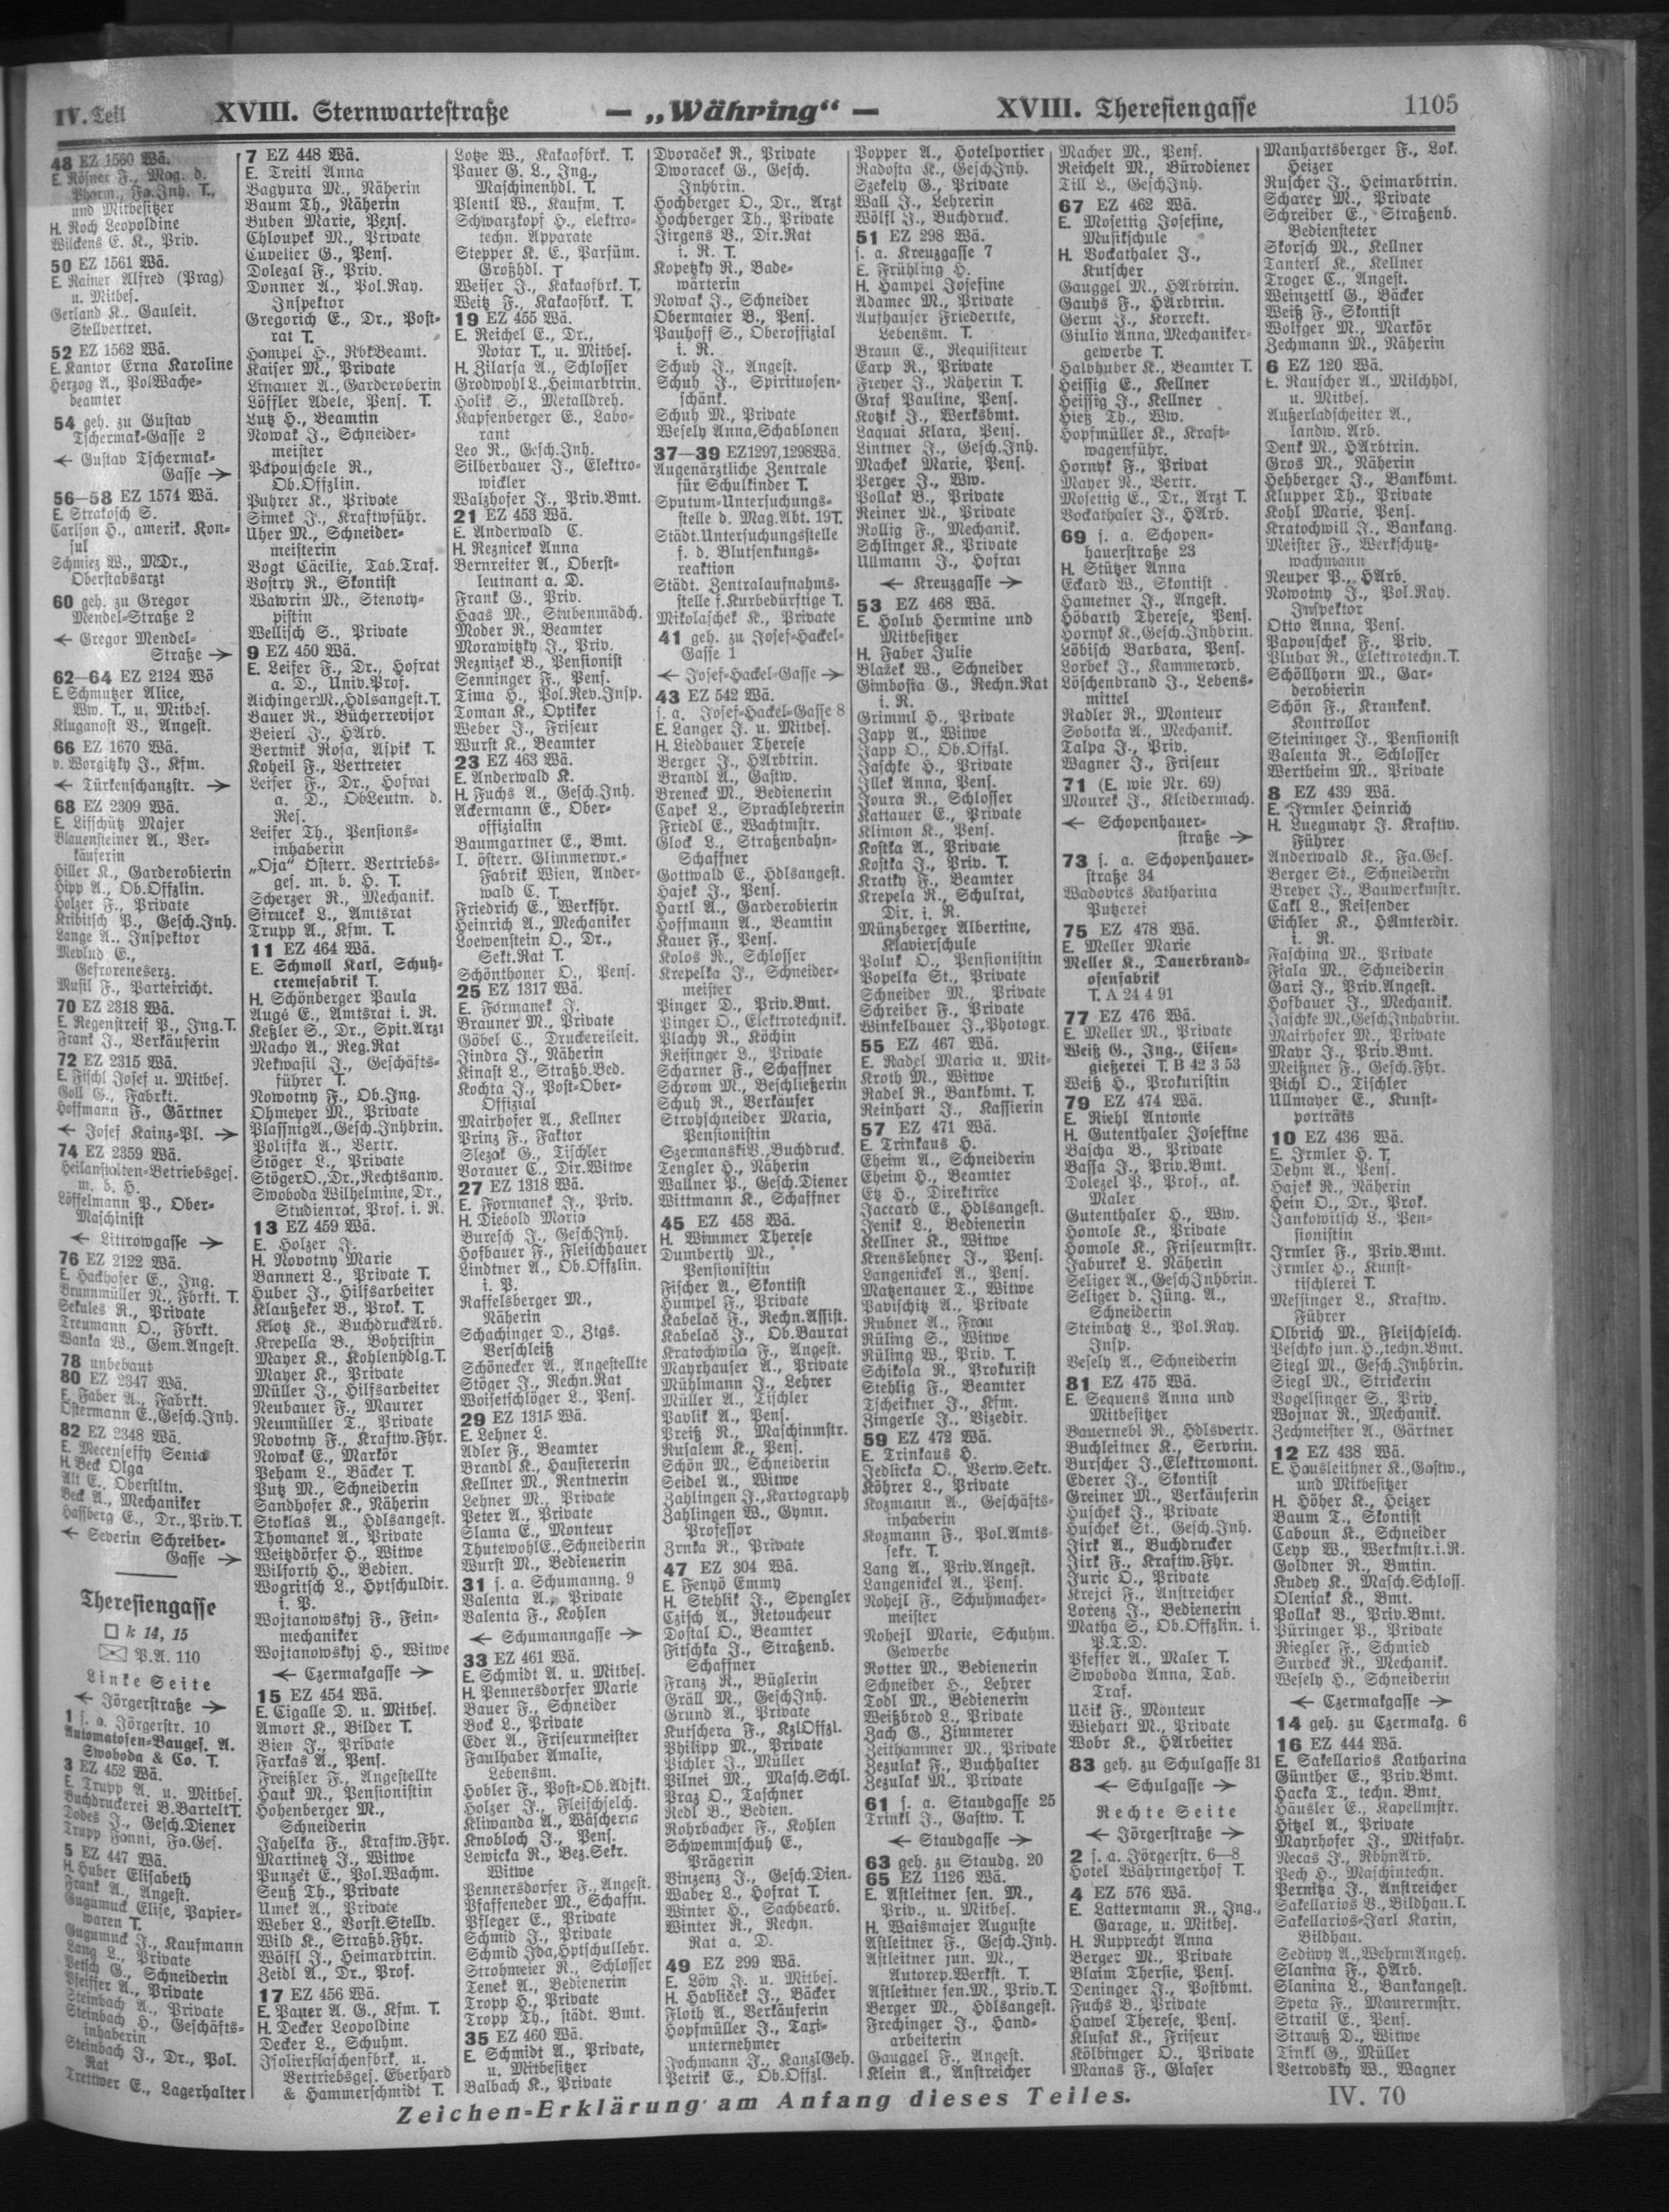 IV. Teil
XVIII. Sternwartestraße
— „Währing“ —
XVIII. Theresiengasse
1105
48 EZ 1560 Wä.
E. Rösner F., Mag. d.
Pharm., Fa.Inh. T.,
und Mitbesitzer
H. Roch Leopoldine
Wilckens E. K., Priv.
50 EZ 1561 Wä.
E. Rainer Alfred (Prag)
u. Mitbes.
Gerland K., Gauleit.
Stellvertret.
52 EZ 1562 Wä.
E. Kantor Erna Karoline
Herzog A., PolWache-
beamter
54 geh. zu Gustav
Tschermak-Gasse 2
← Gustav Tschermak-
Gasse →
56—58 EZ 1574 Wä.
E. Strakosch S.
Carlson H., amerik. Kon-
sul
Schmiez W., MDr.,
Oberstabsarzt
60 geh. zu Gregor
Mendel-Straße 2
← Gregor Mendel-
Straße →
62—64 EZ 2124 Wö
E. Schmutzer Alice,
Ww. T., u. Mitbes.
Kluganost V., Angest.
66 EZ 1670 Wä.
v. Worgitzky J., Kfm.
← Türkenschanzstr. →
68 EZ 2309 Wä.
E. Lifschütz Majer
Blauensteiner A., Ver-
käuferin
Hiller K., Garderobierin
Hipp A., Ob.Offzlin.
Holzer F., Private
Kribitsch P., Gesch.Inh.
Lange A., Inspektor
Mevlud E.,
Gefroreneserz.
Musil F., Parteiricht.
70 EZ 2318 Wä.
E. Regenstreif P., Ing.T.
Frank J., Verkäuferin
72 EZ 2315 Wä.
E. Fischl Josef u. Mitbes.
Goll G., Fabrkt.
Hoffmann F., Gärtner
← Josef Kainz-Pl. →
74 EZ 2359 Wä.
Heilanstalten-Betriebsges.
m. b. H.
Löffelmann P., Ober-
Maschinist
← Littrowgasse →
76 EZ 2122 Wä.
E. Hackhofer E., Ing.
Brunnmüller R., Fbrkt. T.
Sekules R., Private
Treumann O., Fbrkt.
Wanka W., Gem.Angest.
78 unbebaut
80 EZ 2347 Wä.
E. Faber A., Fabrkt.
Ostermann E.,Gesch.Inh.
82 EZ 2348 Wä.
E. Mecenseffy Senta
H. Beck Olga
Alt E., Oberstltn.
Beck A., Mechaniker
Hassberg E., Dr., Priv.T.
← Severin Schreiber-
Gasse →
Theresiengasse
k 14, 15
P.A. 110
Linke Seite
← Jörgerstraße →
1 s. a. Jörgerstr. 10
Automatofen-Bauges. A.
Swoboda & Co. T.
3 EZ 452 Wä.
E. Trupp A. u. Mitbes.
Buchdruckerei B.Bartelt T.
Dodes J., Gesch.Diener
Trupp Fanni, Fa.Ges.
5 EZ 447 Wä.
H. Huber Elisabeth
Frank A., Angest.
Gugumuck Elise, Papier-
waren T.
Gugumuck J., Kaufmann
Lang L., Private
Petsch G., Schneiderin
Pfeiffer A., Private
Steinbach A., Private
Steinbach H., Geschäfts-
inhaberin
Steinbach J., Dr., Pol.
Rat
Trettwer E., Lagerhalter
7 EZ 448 Wä.
E. Treitl Anna
Baghura M., Näherin
Baum Th., Näherin
Buben Marie, Pens.
Chloupek M., Private
Cuvelier G., Pens.
Dolezal F., Priv.
Donner A., Pol.Ray.
Inspektor
Gregorich E., Dr., Post-
rat T.
Hampel H., RbkBeamt.
Kaiser M., Private
Linauer A., Garderoberin
Löffler Adele, Pens. T.
Lutz H., Beamtin
Nowak J., Schneider-
meister
Papouschele R.,
Ob.Offzlin.
Puhrer K., Private
Simek J., Kraftwführ.
Uher M., Schneider-
meisterin
Vogt Cäcilie, Tab.Traf.
Vostry R., Skontist
Wawrin M., Stenoty-
pistin
Wellisch S., Private
9 EZ 450 Wä.
E. Leifer F., Dr., Hofrat
a. D., Univ.Prof.
AichingerM.,Hdlsangest.T.
Bauer R., Bücherrevisor
Beierl J., HArb.
Bertnik Rosa, Aspik T.
Koheil F., Vertreter
Leifer F., Dr., Hofrat
a. D., ObLeutn. d.
Res.
Leifer Th., Pensions-
inhaberin
„Oja“ Österr. Vertriebs-
ges. m. b. H. T.
Scherzer R., Mechanik.
Sirucek L., Amtsrat
Trupp A., Kfm. T.
11 EZ 464 Wä.
E. Schmoll Karl, Schuh-
cremefabrik T.
H. Schönberger Paula
Augé E., Amtsrat i. R.
Keßler S., Dr., Spit.Arzt
Macho A., Reg.Rat
Nekwasil J., Geschäfts-
führer T.
Nowotny F., Ob.Ing.
Ohmeyer M., Private
PlassnigA.,Gesch.Inhbrin.
Polifka A., Vertr.
Stöger L., Private
StögerO.,Dr.,Rechtsanw.
Swoboda Wilhelmine, Dr.,
Studienrat, Prof. i. R.
13 EZ 459 Wä.
E. Holzer J.
H. Novotny Marie
Bannert L., Private T.
Huber J., Hilfsarbeiter
Klaußeker B., Prok. T.
Klotz K., BuchdruckArb.
Krepella B., Bohristin
Mayer K., Kohlenhdlg.T.
Mayer K., Private
Müller J., Hilfsarbeiter
Neubauer F., Maurer
Neumüller T., Private
Novotny F., Kraftw.Fhr.
Nowak E., Markör
Peham L., Bäcker T.
Putz M., Schneiderin
Sandhofer K., Näherin
Stoklas A., Hdlsangest.
Thomanek A., Private
Weitzdörfer H., Witwe
Wilforth H., Bedien.
Wogritsch L., Hptschuldir.
i. P.
Wojtanowskyj F., Fein-
mechaniker
Wojtanowskyj H., Witwe
← Czermakgasse →
15 EZ 454 Wä.
E. Cigalle D. u. Mitbes.
Amort K., Bilder T.
Bien J., Private
Farkas A., Pens.
Freißler F., Angestellte
Hauk M., Pensionistin
Hohenberger M.,
Schneiderin
Jahelka F., Kraftw.Fhr.
Martinetz J., Witwe
Punzet E., Pol.Wachm.
Seuß Th., Private
Umek A., Private
Weber L., Vorst.Stellv.
Wild K., Straßb.Fhr.
Wölfl J., Heimarbtrin.
Zeidl A., Dr., Prof.
17 EZ 456 Wä.
E. Pauer A. G., Kfm. T.
H. Decker Leopoldine
Decker L., Schuhm.
Isolierflaschenfbrk. u.
Vertriebsges. Eberhard
& Hammerschmidt T.
Lotze W., Kakaofbrk. T.
Pauer G. L., Ing.,
Maschinenhdl. T.
Plentl W., Kaufm. T.
Schwarzkopf H., elektro-
techn. Apparate
Stepper K. E., Parfüm.
Großhdl. T
Weiser J., Kakaofbrk. T.
Weitz F., Kakaofbrk. T.
19 EZ 455 Wä.
E. Reichel E., Dr.,
Notar T., u. Mitbes.
H. Zilarsa A., Schlosser
Grodwohl L.,Heimarbtrin.
Holik S., Metalldreh.
Kapfenberger E., Labo-
rant
Leo R., Gesch.Inh.
Silberbauer J., Elektro-
wickler
Walzhofer J., Priv.Bmt.
21 EZ 453 Wä.
E. Anderwald C.
H. Reznicek Anna
Bernreiter A., Oberst-
leutnant a. D.
Frank G., Priv.
Haas M., Stubenmädch.
Moder R., Beamter
Morawitzky J., Priv.
Reznizek B., Pensionist
Senninger F., Pens.
Tima H., Pol.Rev.Insp.
Toman K., Optiker
Weber J., Friseur
Wurst K., Beamter
23 EZ 463 Wä.
E. Anderwald K.
H. Fuchs A., Gesch.Inh.
Ackermann E., Ober-
offizialin
Baumgartner E., Bmt.
I. österr. Glimmerwr.-
Fabrik Wien, Ander-
wald C. T.
Friedrich E., Werkfhr.
Heinrich A., Mechaniker
Loewenstein O., Dr.,
Sekt.Rat T.
Schönthoner O., Pens.
25 EZ 1317 Wä.
E. Formanek J.
Brauner M., Private
Göbel C., Druckereileit.
Jindra J., Näherin
Kinast L., Straßb.Bed.
Kochta J., Post-Ober-
Offizial
Mairhofer A., Kellner
Prinz F., Faktor
Slezak G., Tischler
Vorauer C., Dir.Witwe
27 EZ 1318 Wä.
E. Formanek J., Priv.
H. Diebold Maria
Buresch J., GeschInh.
Hofbauer F., Fleischhauer
Lindtner A., Ob.Offzlin.
i. P.
Raffelsberger M.,
Näherin
Schachinger D., Ztgs.
Verschleiß
Schönecker A., Angestellte
Stöger J., Rechn.Rat
Woisetschlöger L., Pens.
29 EZ 1315 Wä.
E. Lehner L.
Adler F., Beamter
Brandl K., Hausiererin
Kellner M., Rentnerin
Lehner M., Private
Peter A., Private
Slama E., Monteur
ThutewohlE.,Schneiderin
Wurst M., Bedienerin
31 s. a. Schumanng. 9
Valenta A., Private
Valenta F., Kohlen
← Schumanngasse →
33 EZ 461 Wä.
E. Schmidt A. u. Mitbes.
H. Pennersdorfer Marie
Bauer F., Schneider
Bock L., Private
Eder A., Friseurmeister
Faulhaber Amalie,
Lebensm.
Hobler F., Post-Ob.Adjkt.
Holzer J., Fleischselch.
Kliwanda A., Wäscherin
Knobloch J., Pens.
Lewicka R., Bez.Sekr.
Witwe
Pennersdorfer F., Angest.
Pfaffeneder M., Schaffn.
Pfleger E., Private
Schmid J., Private
Schmid Ida,Hptschullehr.
Strohmeier R., Schlosser
Tenek A., Bedienerin
Tropp H., Private
Tropp Th., städt. Bmt.
35 EZ 460 Wä.
E. Schmidt A., Private,
u. Mitbesitzer
Balbach K., Private
Dvoraček R., Private
Dworacek G., Gesch.
Inhbrin.
Hochberger O., Dr., Arzt
Hochberger Th., Private
Jirgens B., Dir.Rat
i. R. T.
Kopetzky R., Bade-
wärterin
Nowak J., Schneider
Obermaier B., Pens.
Pauhoff S., Oberoffizial
i. R.
Schuh J., Angest.
Schuh J., Spirituosen-
schänk.
Schuh M., Private
Wesely Anna,Schablonen
37—39 EZ1297,1298Wä.
Augenärztliche Zentrale
für Schulkinder T.
Sputum-Untersuchungs-
stelle d. Mag.Abt. 19T.
Städt.Untersuchungsstelle
f. d. Blutsenkungs-
reaktion
Städt. Zentralaufnahms-
stelle f.Kurbedürftige T.
Mikolaschek K., Private
41 geh. zu Josef-Hackel-
Gasse 1
← Josef-Hackel-Gasse →
43 EZ 542 Wä.
s. a. Josef-Hackel-Gasse 8
E. Langer J. u. Mitbes.
H. Liedbauer Therese
Berger J., HArbtrin.
Brandl A., Gastw.
Breneck M., Bedienerin
Capek L., Sprachlehrerin
Friedl E., Wachtmstr.
Glock L., Straßenbahn-
Schaffner
Gottwald E., Hdlsangest.
Hajek J., Pens.
Hartl A., Garderobierin
Hoffmann A., Beamtin
Kauer F., Pens.
Kolos R., Schlosser
Krepelka J., Schneider-
meister
Pinger D., Priv.Bmt.
Pinger O., Elektrotechnik.
Plachy R., Köchin
Reisinger L., Private
Scharner F., Schaffner
Schrom M., Beschließerin
Schuh R., Verkäufer
Strohschneider Maria,
Pensionistin
SzermanskiV.,Buchdruck.
Tengler H., Näherin
Wallner P., Gesch.Diener
Wittmann K., Schaffner
45 EZ 458 Wä.
H. Wimmer Therese
Dumberth M.,
Pensionistin
Fischer A., Skontist
Humpel F., Private
Kabelač F., Rechn.Assist.
Kabelač J., Ob.Baurat
Kratochwila F., Angest.
Mayrhauser A., Private
Mühlmann J., Lehrer
Müller A., Tischler
Pavlik A., Pens.
Preiß R., Maschinmstr.
Rusalem K., Pens.
Schön M., Schneiderin
Seidel A., Witwe
Zahlingen J.,Kartograph
Zahlingen W., Gymn.
Professor
Zrnka R., Private
47 EZ 304 Wä.
E. Fenyö Emmy
H. Stehlik J., Spengler
Czisch A., Retoucheur
Dostal O., Beamter
Fitschka J., Straßenb.
Schaffner
Franz R., Büglerin
Gräll M., GeschInh.
Grund A., Private
Kutschera F., KzlOffzl.
Philipp M., Private
Pichler J., Müller
Pilnei M., Masch.Schl.
Praz O., Taschner
Redl B., Bedien.
Rohrbacher F., Kohlen
Schwemmschuh E.,
Prägerin
Vinzenz J., Gesch.Dien.
Waber L., Hofrat T.
Winter H., Sachbearb.
Winter R., Rechn.
Rat a. D.
49 EZ 299 Wä.
E. Löw J. u. Mitbes.
H. Havliček J., Bäcker
Floth A., Verkäuferin
Hopfmüller J., Taxi-
unternehmer
Jochmann J., KanzlGeh.
Petrik E., Ob.Offzl.
Popper A., Hotelportier
Radosta K., GeschInh.
Szekely G., Private
Wall J., Lehrerin
Wölfl J., Buchdruck.
51 EZ 298 Wä.
s. a. Kreuzgasse 7
E. Frühling H.
H. Hampel Josefine
Adamec M., Private
Aufhauser Friederike,
Lebensm. T.
Braun E., Requisiteur
Earp R., Private
Freyer J., Näherin T.
Graf Pauline, Pens.
Kotzik J., Werksbmt.
Laquai Klara, Pens.
Lintner J., Gesch.Inh.
Machek Marie, Pens.
Perger J., Ww.
Pollak B., Private
Reiner M., Private
Rollig F., Mechanik.
Schlinger K., Private
Ullmann J., Hofrat
← Kreuzgasse →
53 EZ 468 Wä.
E. Holub Hermine und
Mitbesitzer
H. Faber Julie
Blažek W., Schneider
Gimbosta G., Rechn.Rat
i. R.
Grimml H., Private
Japp A., Witwe
Japp O., Ob.Offzl.
Jaschke H., Private
Illek Anna, Pens.
Joura R., Schlosser
Kattauer E., Private
Klimon K., Pens.
Kostka A., Private
Kostka J., Priv. T.
Kratky F., Beamter
Krepela R., Schulrat,
Dir. i. R.
Münzberger Albertine,
Klavierschule
Poluk O., Pensionistin
Popelka St., Private
Schneider M., Private
Schreiber F., Private
Winkelbauer J.,Photogr.
55 EZ 467 Wä.
E. Radel Maria u. Mit-
Kroth M., Witwe
Radel R., Bankbmt. T.
Reinhart J., Kassierin
57 EZ 471 Wä.
E. Trinkaus H.
Eheim A., Schneiderin
Eheim H., Beamter
Etz H., Direktrice
Jaccard E., Hdlsangest.
Jenik L., Bedienerin
Kellner K., Witwe
Krenslehner J., Pens.
Langenickel A., Pens.
Matzenauer T., Witwe
Pavischitz A., Private
Rubner A., Frau
Rüling S., Witwe
Rüling W., Priv. T.
Schikola R., Prokurist
Stehlig F., Beamter
Tscheikner J., Kfm.
Zingerle J., Vizedir.
59 EZ 472 Wä.
E. Trinkaus H.
Jedlicka O., Verw.Sekr.
Köhrer L., Private
Kozmann A., Geschäfts-
inhaberin
Kozmann F., Pol.Amts-
sekr. T.
Lang A., Priv.Angest.
Langenickel A., Pens.
Nohejl F., Schuhmacher-
meister
Nohejl Marie, Schuhm.
Gewerbe
Rotter M., Bedienerin
Schneider H., Lehrer
Todl M., Bedienerin
Weißbrod L., Private
Zach G., Zimmerer
Zeithammer M., Private
Zezulak F., Buchhalter
Zezulak M., Private
61 s. a. Staudgasse 25
Trinkl J., Gastw. T.
← Staudgasse →
63 geh. zu Staudg. 20
65 EZ 1126 Wä.
E. Astleitner sen. M.,
Priv., u. Mitbes.
H. Waismajer Auguste
Astleitner F., Gesch.Inh.
Astleitner jun. M.,
Autorep.Werkst. T.
Astleitner sen.M., Priv.T.
Berger M., Hdlsangest.
Frechinger J., Hand-
arbeiterin
Gauggel F., Angest.
Klein A., Anstreicher
Macher M., Pens.
Reichelt M., Bürodiener
Till L., GeschInh.
67 EZ 462 Wä.
E. Mosettig Josefine,
Musikschule
H. Vockathaler J.,
Kutscher
Gauggel M., HArbtrin.
Gauhs F., HArbtrin.
Germ J., Korrekt.
Giulio Anna, Mechaniker-
gewerbe T.
Haldhuber K., Beamter T.
Heissig E., Kellner
Heissig J., Kellner
Hietz Th., Ww.
Hopfmüller K., Kraft-
wagenführ.
Hornyk F., Privat
Mayer R., Vertr.
Mosettig E., Dr., Arzt T.
Vockathaler J., HArb.
69 s. a. Schopen-
hauerstraße 23
H. Stützer Anna
Eckard W., Skontist
Hametner J., Angest.
Höbarth Therese, Pens.
Hornyk K.,Gesch.Inhbrin.
Löbisch Barbara, Pens.
Lorbek J., Kammerarb.
Löschenbrand J., Lebens-
mittel
Radler R., Monteur
Sobotka A., Mechanik.
Talpa J., Priv.
Wagner J., Friseur
71 (E. wie Nr. 69)
Mourek J., Kleidermach.
← Schopenhauer-
straße →
73 s. a. Schopenhauer-
straße 34
Wadovics Katharina
Putzerei
75 EZ 478 Wä.
E. Meller Marie
Meller K., Dauerbrand-
ofenfabrik
T. A 24 4 91
77 EZ 476 Wä.
E. Meller M., Private
Weiß G., Ing., Eisen-
gießerei T. B 42 3 53
Weiß H., Prokuristin
79 EZ 474 Wä.
E. Riehl Antonie
H. Gutenthaler Josefine
Bascha B., Private
Bassa J., Priv.Bmt.
Dolezel P., Prof., ak.
Maler
Gutenthaler H., Ww.
Homole K., Private
Homole K., Friseurmstr.
Jaburek L. Näherin
Seliger A.,GeschInhbrin.
Seliger d. Jüng. A.,
Schneiderin
Steinbatz L., Pol.Ray.
Insp.
Vesely A., Schneiderin
81 EZ 475 Wä.
E. Sequens Anna und
Mitbesitzer
Bauernebl R., Hdlsvertr.
Buchleitner K., Servrin.
Burscher J.,Elektromont.
Ederer J., Skontist
Greiner M., Verkäuferin
Huschek J., Private
Huschek St., Gesch.Inh.
Jirk A., Buchdrucker
Jirk F., Kraftw.Fhr.
Juric O., Private
Krejci F., Anstreicher
Lorenz J., Bedienerin
Matha S., Ob.Offzlin. i.
P.T.D.
Pfeffer A., Maler T.
Swoboda Anna, Tab.
Traf.
Učik F., Monteur
Wiehart M., Private
Wobr K., HArbeiter
83 geh. zu Schulgasse 31
← Schulgasse →
Rechte Seite
← Jörgerstraße →
2 s. a. Jörgerstr. 6—8
Hotel Währingerhof T.
4 EZ 576 Wä.
E. Lattermann R., Ing.,
Garage, u. Mitbes.
H. Rupprecht Anna
Berger M., Private
Blaim Thersie, Pens.
Deninger J., Postbmt.
Fuchs B., Private
Hawel Therese, Pens.
Klusak K., Friseur
Kölbinger O., Private
Manas F., Glaser
Manhartsberger F., Lok.
Heizer
Ruscher J., Heimarbtrin.
Scharer M., Private
Schreiber E., Straßenb.
Bediensteter
Skorsch M., Kellner
Tanterl K., Kellner
Troger C., Angest.
Weinzettl G., Bäcker
Weiß F., Skontist
Wolfger M., Markör
Zechmann M., Näherin
6 EZ 120 Wä.
E. Rauscher A., Milchhdl,
u. Mitbes.
Außerladscheiter A.,
landw. Arb.
Denk M., HArbtrin.
Gros M., Näherin
Hehberger J., Bankbmt.
Klupper Th., Private
Kohl Marie, Pens.
Kratochwill J., Bankang.
Meister F., Werkschutz-
wachmann
Neuper P., HArb.
Nowotny J., Pol.Ray.
Inspektor
Otto Anna, Pens.
Papouschek F., Priv.
Pluhar R., Elektrotechn.T.
Schöllhorn M., Gar-
derobierin
Schön F., Krankenk.
Kontrollor
Steininger J., Pensionist
Valenta R., Schlosser
Wertheim M., Private
8 EZ 439 Wä.
E. Irmler Heinrich
H. Luegmayr J. Kraftw.
Führer
Anderwald K., Fa.Ges.
Berger St., Schneiderin
Breyer J., Bauwerkmstr.
Cakl L., Reisender
Eichler K., HAmterdir.
i. R.
Fasching M., Private
Fiala M., Schneiderin
Gari J., Priv.Angest.
Hofbauer J., Mechanik.
Jaschke M.,GeschInhabrin.
Mairhofer M., Private
Mayr J., Priv.Bmt.
Meißner F., Gesch.Fhr.
Pichl O., Tischler
Ullmayer E., Kunst-
porträts
10 EZ 436 Wä.
E. Irmler H. T.
Dehm A., Pens.
Hajek R., Näherin
Hein O., Dr., Prok.
Jankowitsch L., Pen-
sionistin
Irmler F., Priv.Bmt.
Irmler H., Kunst-
tischlerei T.
Messinger L., Kraftw.
Führer
Olbrich M., Fleischselch.
Peschko jun. H.,techn.Bmt.
Siegl M., Gesch.Inhbrin.
Siegl M., Strickerin
Vogelsinger S., Priv.
Wojnar R., Mechanik.
Zechmeister A., Gärtner
12 EZ 438 Wä.
E. Hausleithner K.,Gastw.,
und Mitbesitzer
H. Höher K., Heizer
Baum T., Skontist
Caboun K., Schneider
Ceyp W., Werkmstr.i.R.
Goldner R., Bmtin.
Kudey K., Masch.Schloss.
Oleniak K., Bmt.
Pollak B., Priv.Bmt.
Püringer P., Private
Riegler F., Schmied
Surbeck R., Mechanik.
Wesely H., Schneiderin
← Czermakgasse →
14 geh. zu Czermakg. 6
16 EZ 444 Wä.
E. Sakellarios Katharina
Günther E., Priv.Bmt.
Hacka T., techn. Bmt.
Häusler E., Kapellmstr.
Hitzel A., Private
Mayrhofer J., Mitfahr.
Necas J., RbhnArb.
Pech H., Maschintechn.
Pernitza J., Anstreicher
Sakellarios V., Bildhau.T.
Sakellarios-Jarl Karin,
Bildhau.
Sediwy A.,WehrmAngeh.
Slanina F., HArb.
Slanina L., Bankangest.
Speta F., Maurermstr.
Stratil E., Pens.
Strauß D., Witwe
Tinkl G., Müller
Vetrovsky W., Wagner
Zeichen-Erklärung am Anfang dieses Teiles.
IV. 70